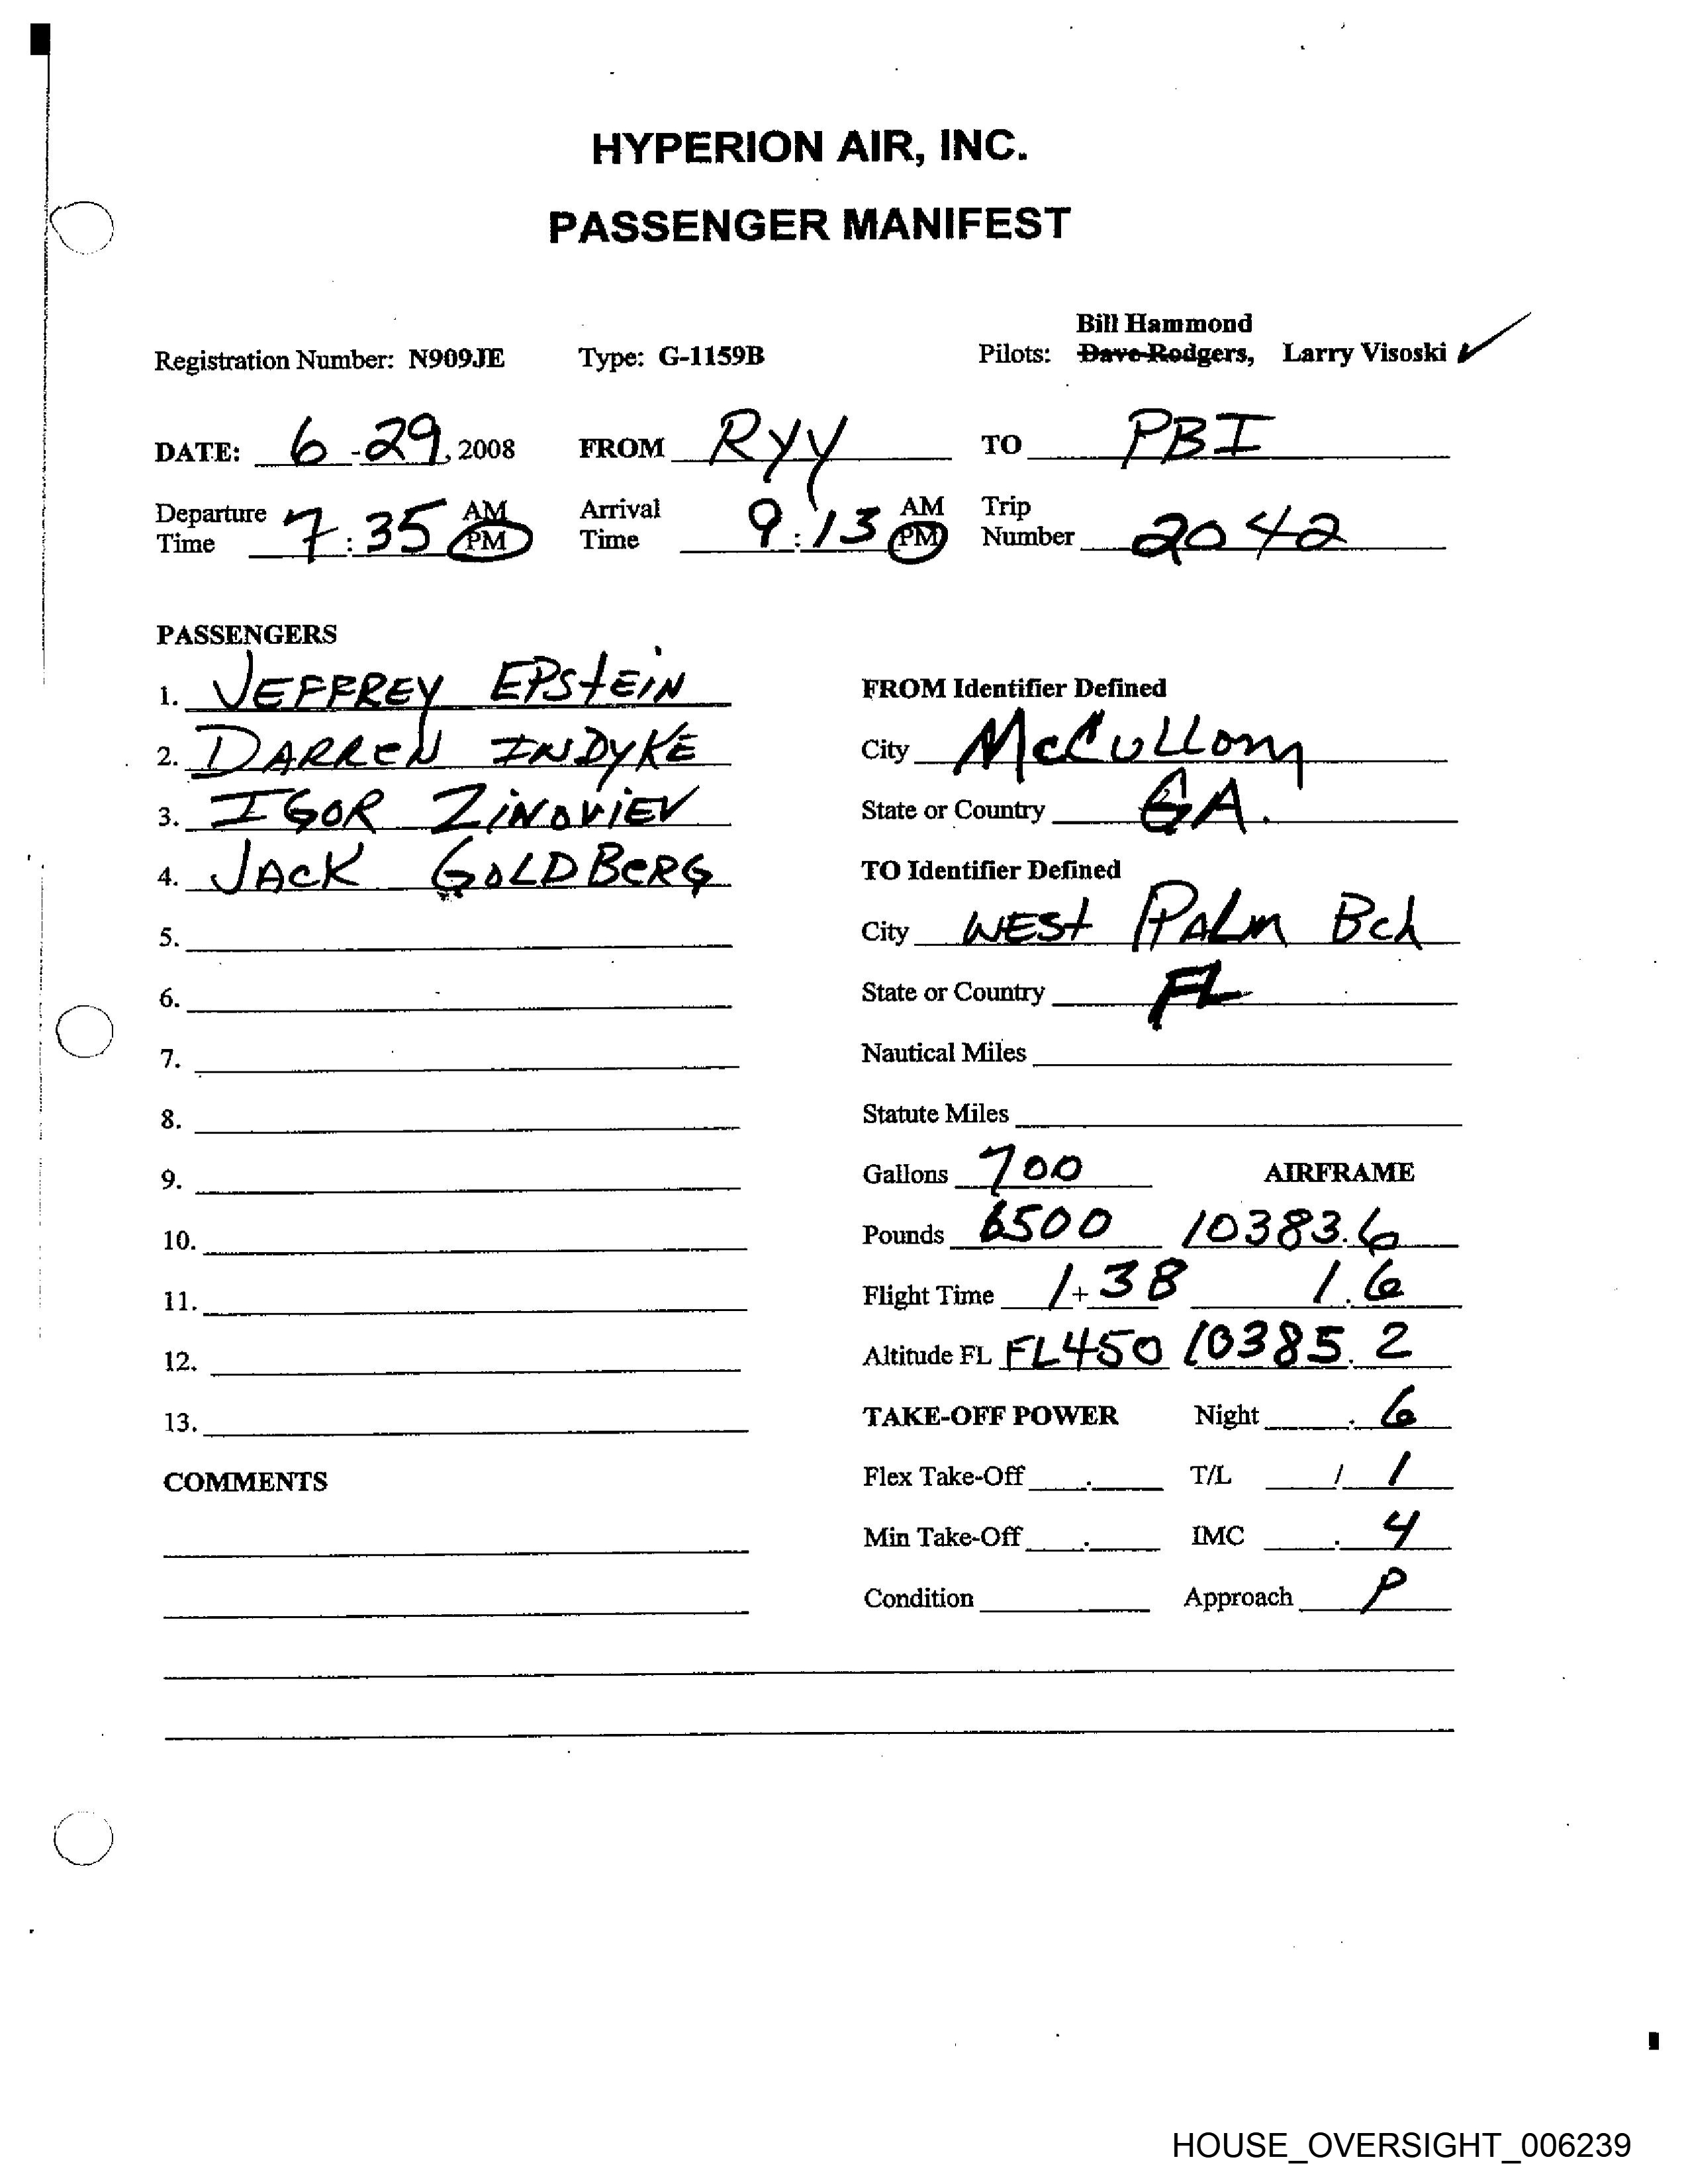 HYPERION AIR, INC.
PASSENGER MANIFEST
Bill Hammond
Registration Number: N909JE Type: G-1159B Pilots: Dave Rodgers, Larry Visoski
DATE: 6-29, 2008 FROM RYY TO PBI
Departure Time 7:35 AM PM Arrival Time 9:13 AM PM Trip Number 2042
PASSENGERS
1. JEFFREY EPStEIN
2. DARREN INDYKE
3. IGOR ZINOVIEV
4. JACK GOLDBERG
5.
6.
7.
8.
9.
10.
11.
12.
13.
COMMENTS
FROM Identifier Defined
City McCullom
State or Country GA.
TO Identifier Defined
City WESt PALM Bch
State or Country FL
Nautical Miles
Statute Miles
Gallons 700 AIRFRAME
Pounds 6500 10383.6
Flight Time 1+38 1.6
Altitude FL FL450 10385.2
TAKE-OFF POWER Night .6
Flex Take-Off . T/L / 1
Min Take-Off . IMC .4
Condition Approach P
HOUSE_OVERSIGHT_006239